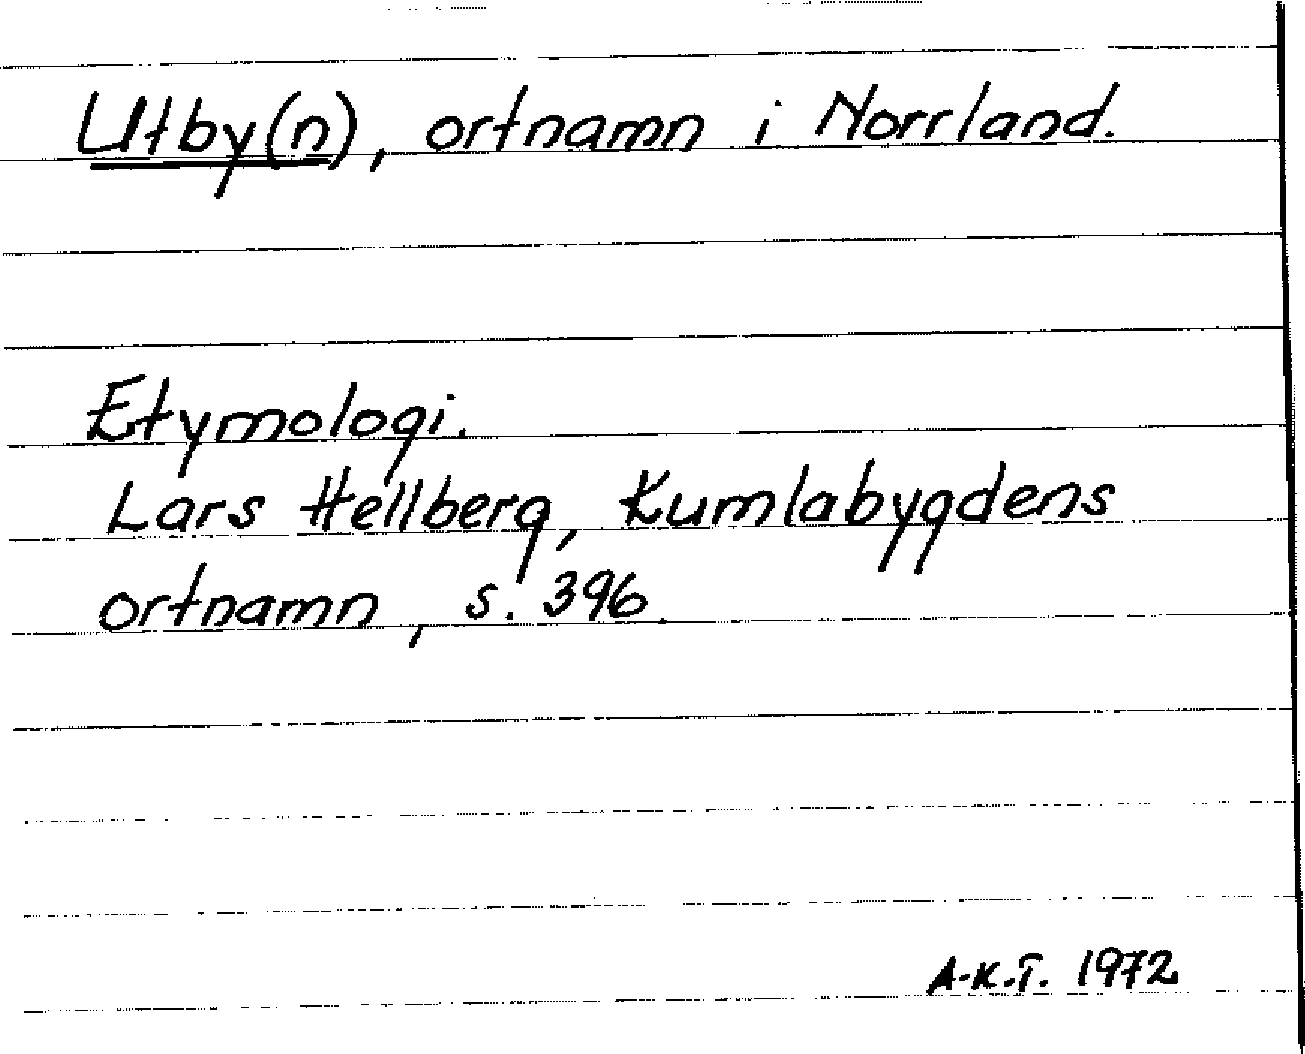 Utby(n), ortnamn i Norrland.
Etymologi.
Lars Hellberg, Kumlabygdens
ortnamn, s. 396.
A-K.T. 1972